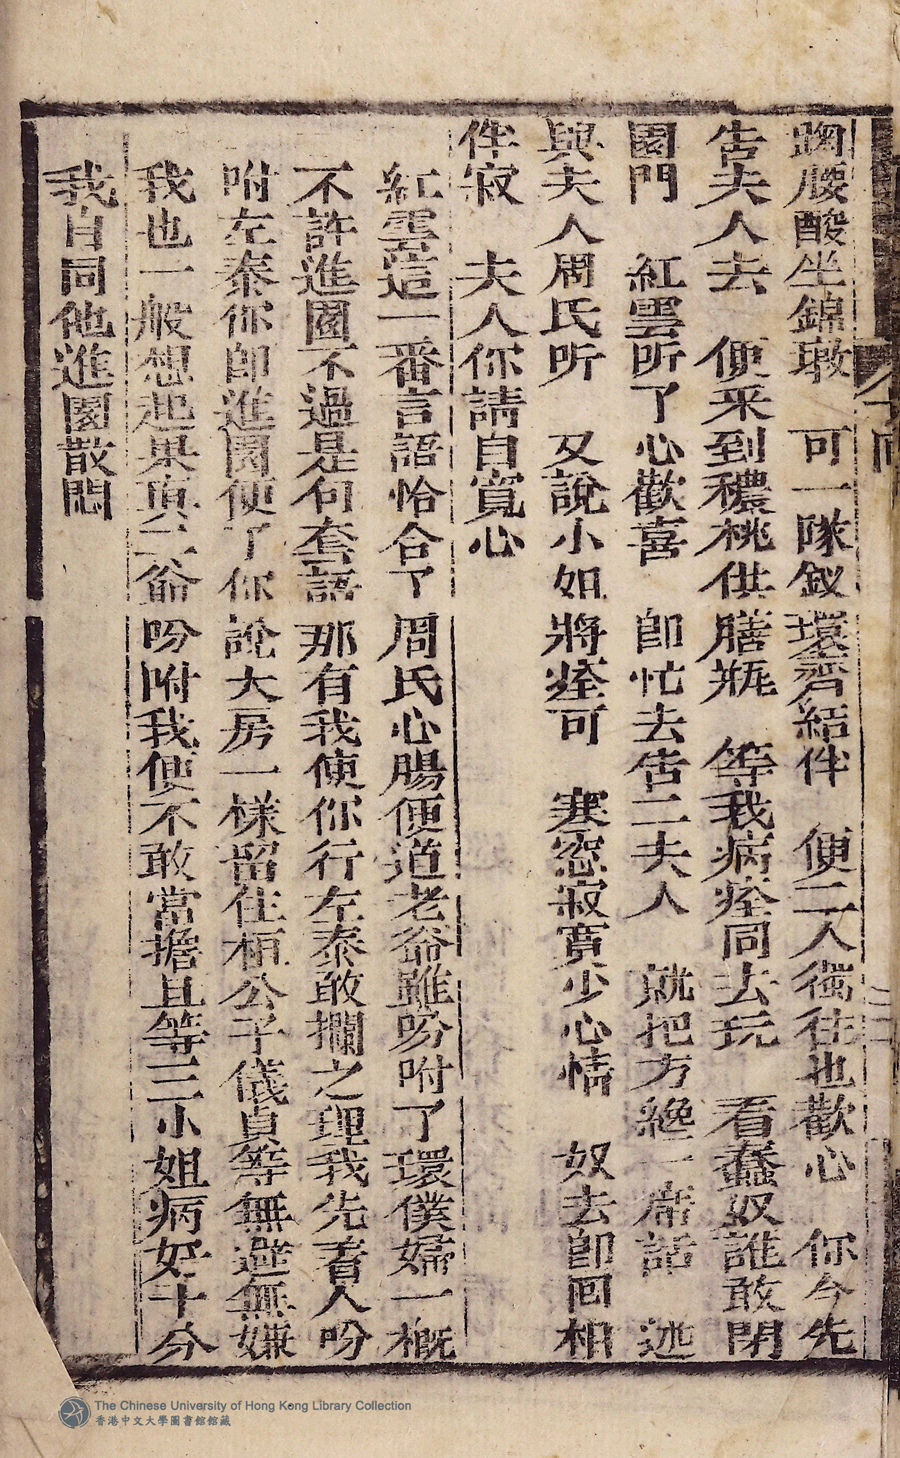 踘腰酸坐錦墩　可一隊釵環齊結伴　便二人獨往也歡心　你今先
告夫人去　便采到穠桃供膳瓶　等我病痊同去玩　看蠢奴誰敢閉
園門　紅雲听了心歡喜　即忙去告二夫人　就把方纔一席話　述
與夫人周氏听　又說小姐將痊可　寒窓寂寞少心情　奴去即回相
伴寂　夫人你請自寬心
紅雲這一番言語恰合了周氏心腸便道老爺雖吩咐了環僕婦一概
不許進園不過是句套語那有我使你行左泰敢攔之理我先着人吩
咐左泰你即進園便了你說大房一樣留住桓公子儀貞等無避無嫌
我也一般想起果真二爺吩咐我便不敢當擔且等三小姐病好十分
我自同他進園散悶
The Chinese University of Hong Kong Library Collection
香港中文大學圖書館館藏